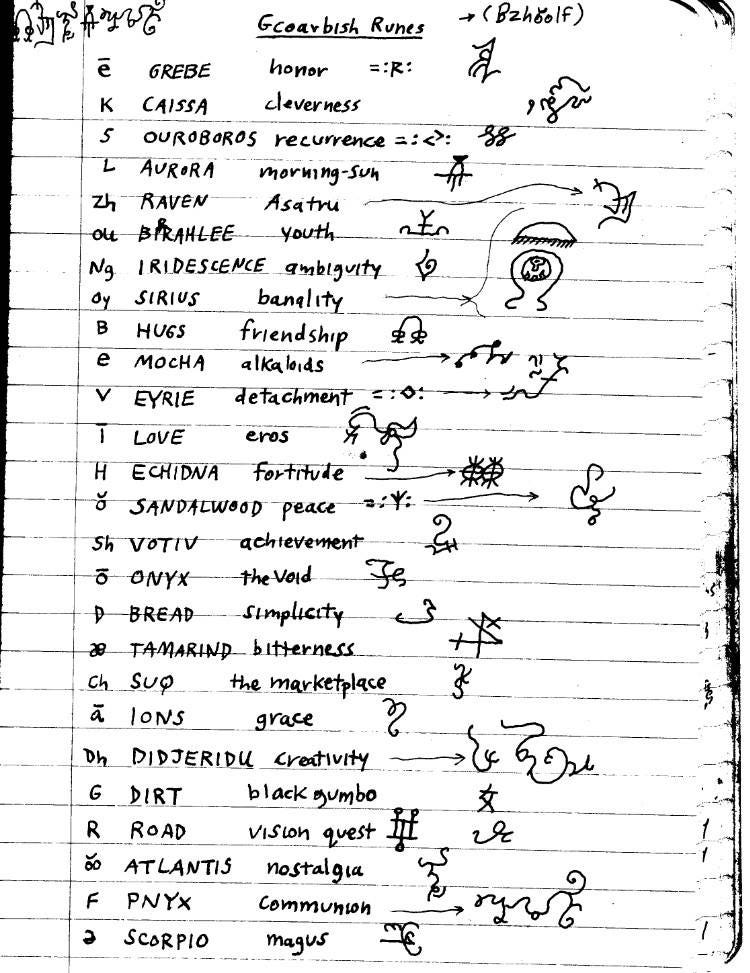 Gcoarbish Runes → (Bzhŏolf)
ē GREBE honor =:R:
K CAISSA cleverness
S OUROBOROS recurrence =:<>:
L AURORA morning-sun
Zh RAVEN Asatru
ou BIRAHLEE youth
Ng IRIDESCENCE ambiguity
oy SIRIUS banality
B HUGS friendship
e MOCHA alkaloids
V EYRIE detachment =:◇:
ī LOVE eros
H ECHIDNA fortitude
ŏ SANDALWOOD peace =:Ψ:
Sh VOTIV achievement
ō ONYX the Void
D BREAD simplicity
æ TAMARIND bitterness
Ch SUQ the marketplace
ā IONS grace
Dh DIDJERIDU creativity
G DIRT black gumbo
R ROAD vision quest
ŏŏ ATLANTIS nostalgia
F PNYX communion
ə SCORPIO magus